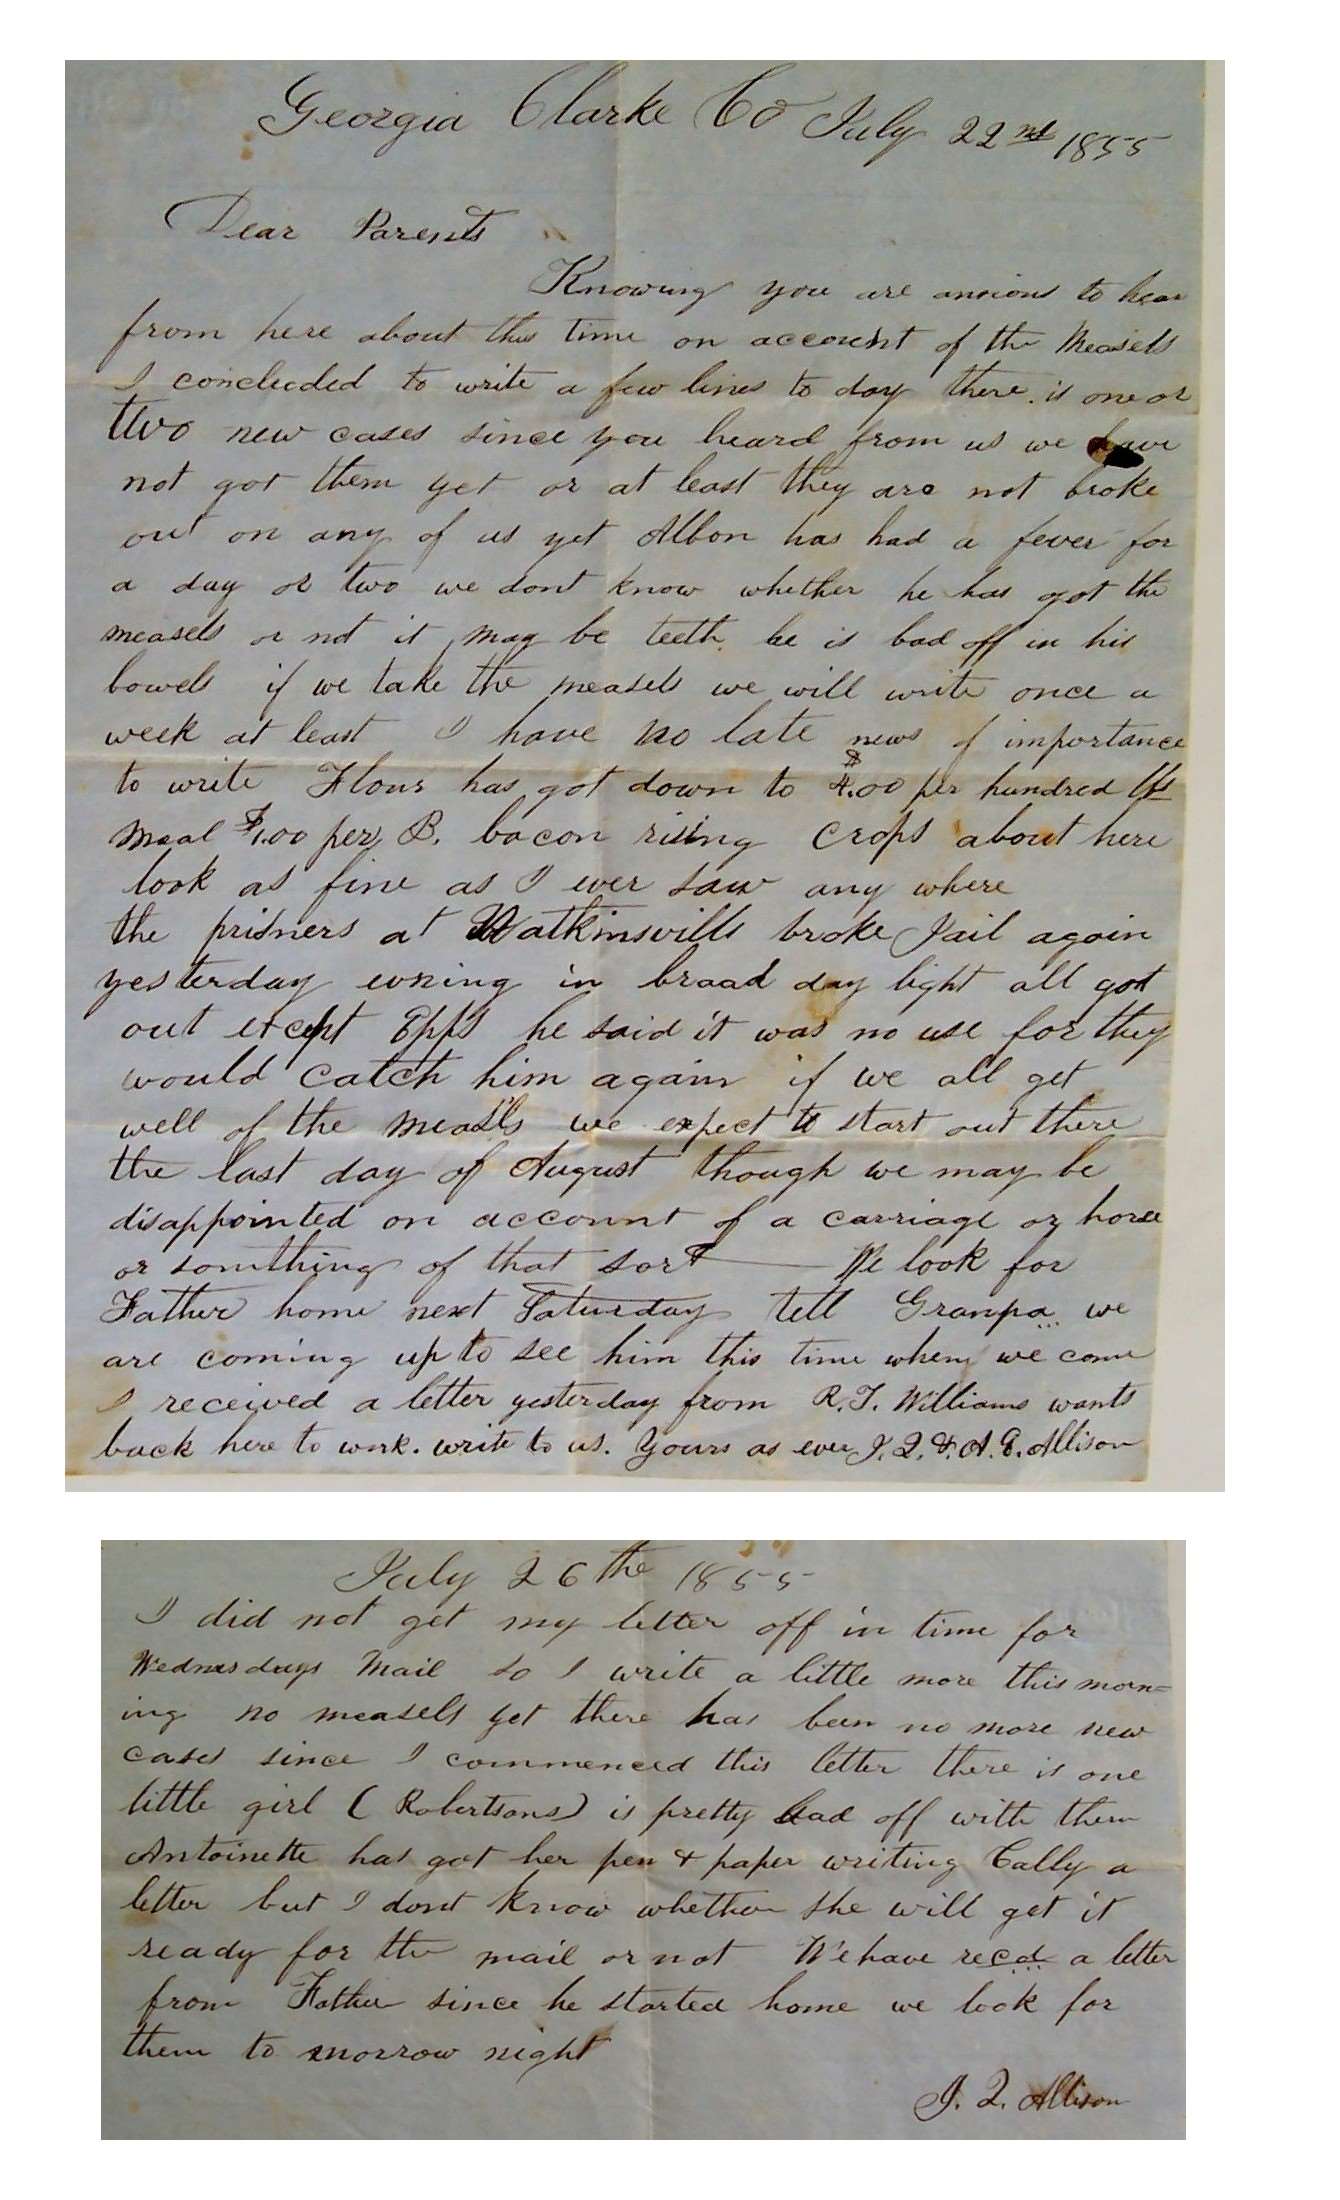 Georgia Clarke Co July 22nd 1855
Dear Parents
Knowing you are anxious to hear
from here about this time on account of the Measels
I concluded to write a few lines to day there is one or
two new cases since you heard from us we have
not got them yet or at least they are not broke
out on any of us yet Albon has had a fever for
a day or two we dont know whether he has got the
measels or not it may be teeth he is bad off in his
bowels if we take the measels we will write once a
week at least I have no late news of importance
to write Flour has got down to $4.00 per hundred lbs
Meal $1.00 per B. bacon rising Crops about here
look as fine as I ever saw any where
the prisners at Watkinsvills broke Jail again
yesterday evning in broad day light all got
out except Epps he said it was no use for they
would catch him again if we all get
well of the measls we expect to start out there
the last day of August though we may be
disappointed on account of a carriage or horse
or somthing of that sort — We look for
Father home next Saturday tell Granpa we
are coming up to see him this time when we come
I received a letter yesterday from R. T. Williams wants
back here to work. write to us. Yours as ever J. Q. & A. E. Allison
July 26the 1855
I did not get my letter off in time for
Wednesdays Mail so I write a little more this morn=
ing no measels yet there has been no more new
cases since I commenced this letter there is one
little girl (Robertsons) is pretty bad off with them
Antoinette has got her pen & paper writing Cally a
letter but I dont know whether she will get it
ready for the mail or not We have recd a letter
from Father since he started home we look for
them to morrow night
J. Q. Allison